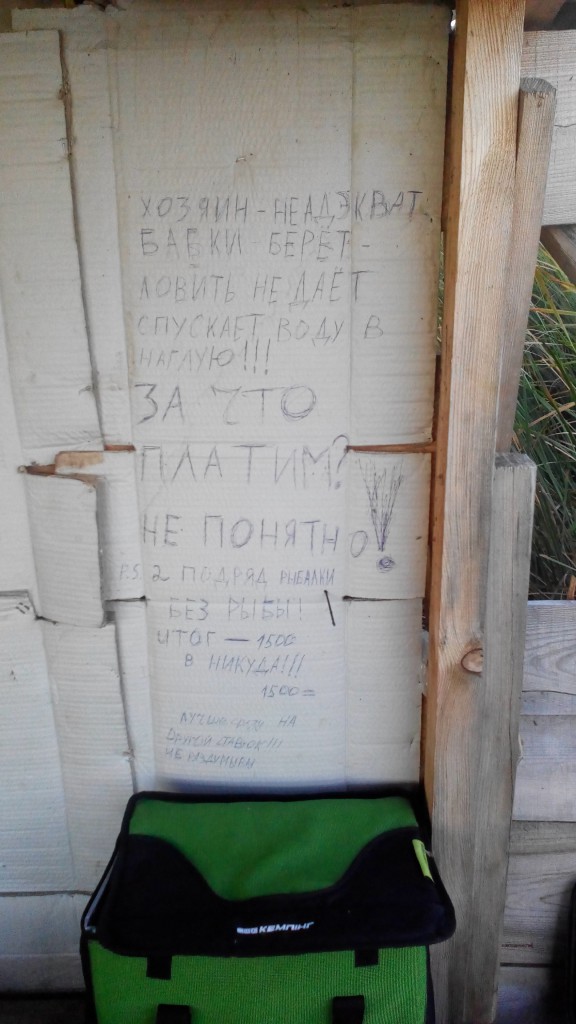 ХОЗЯИН - НЕАДЭКВАТ
БАБКИ БЕРЁТ -
ЛОВИТЬ НЕ ДАЁТ
СПУСКАЕТ ВОДУ В
НАГЛУЮ!!!
ЗА ЧТО
ПЛАТИМ?
НЕ ПОНЯТНО!
P.S. 2 ПОДРЯД РЫБАЛКИ
БЕЗ РЫБЫ!
ИТОГ — 1500
В НИКУДА!!!
1500=
ЛУЧШЕ СРАЗУ НА
ДРУГОЙ СТАВОК!!!
НЕ РАЗДУМЫВАЯ
КЕМПІНГ